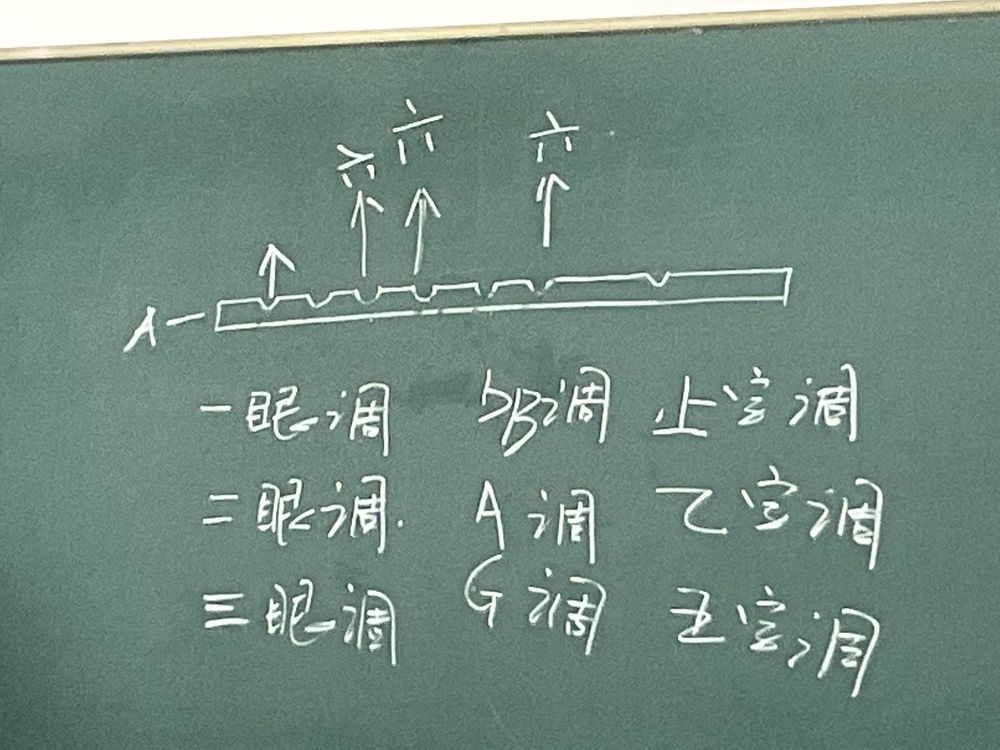 六 六 六
A
一眼调 bB调 上字调
二眼调. A调 乙字调
三眼调 G调 五字调